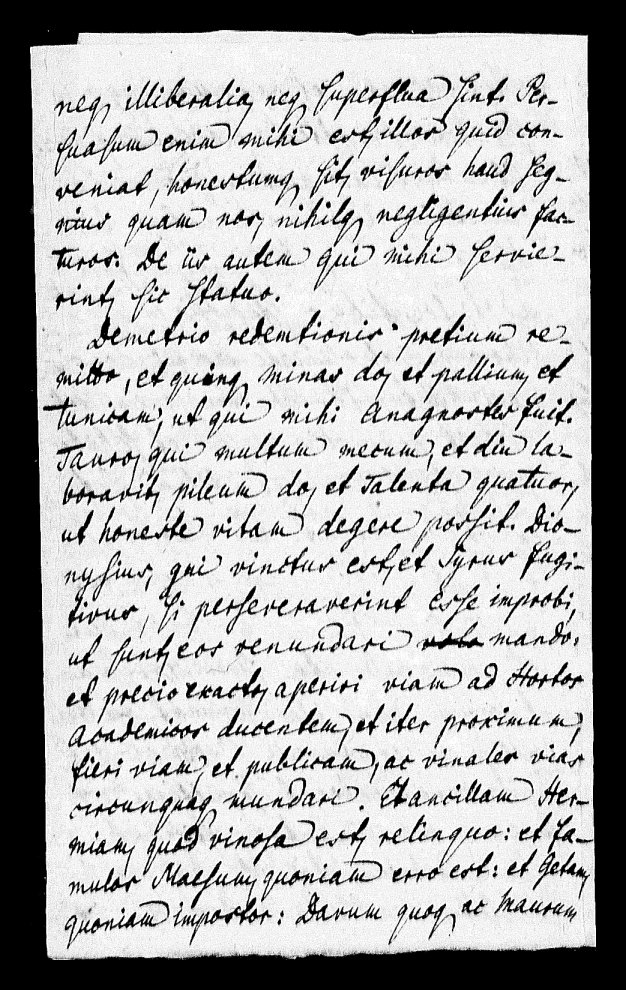 neq illiberalia, neq superflua sint. Per-
suasum enim mihi est, illos quid con-
veniat, honestumq sit, visuros haud seg-
nius quam nos, nihilq negligentius fac-
turos. De iis autem qui mihi servie-
rint, sic statuo.
Demetrio redemtionis pretium re-
mitto, et quinq minas do, et pallium, et
tunicam, ut qui mihi Anagnostes fuit.
Tauro, qui multum mecum, et diu la-
boravit, pileum do, et Talenta quatuor,
ut honeste vitam degere possit. Dio-
nysius, qui vinctus est, et Tyrus fugi-
tivus, si perseveraverint esse improbi,
ut sunt, eos venundari volo mando:
et precio exacto, aperiri viam ad Hortos
Academicos ducentem, et iter proximum,
fieri viam, et publicam, ac vinales vias
circunquaq mundari. Et ancillam Her-
miam, quod vinosa est, relinquo: et fa-
mulos Maesum, quoniam erro est: et Getam,
quoniam impostor: Davum quoq ac Maurum